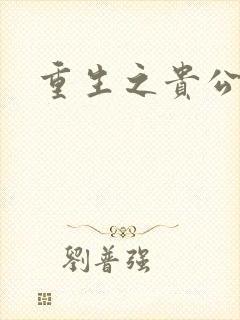 重生之貴公
劉普强